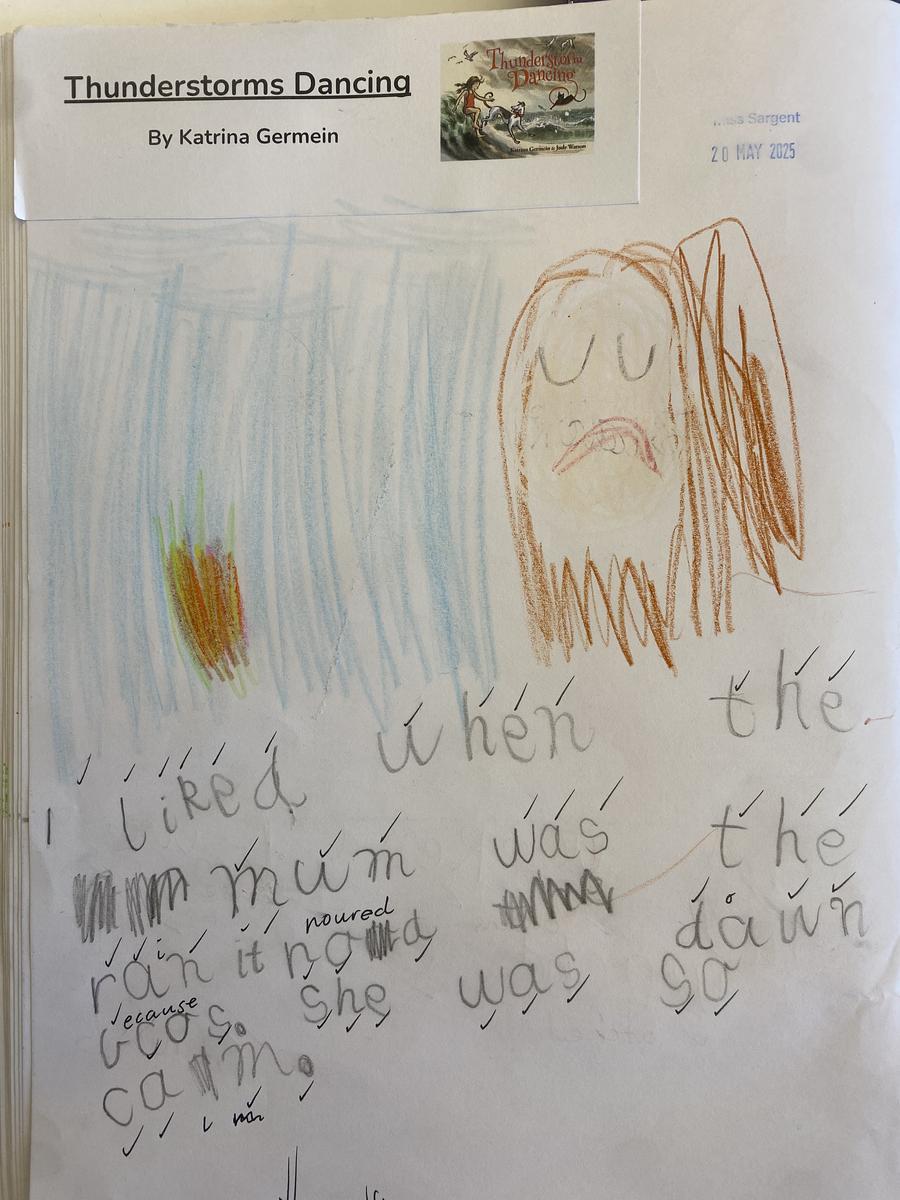 Thunderstorms Dancing
By Katrina Germein
Thunderstorm
Dancing
Katrina Germein & Judy Watson
Miss Sargent
20 MAY 2025
I liked when the
mum was the
noured
ran it nod dawn
ecause
bcos. She was so
calm.